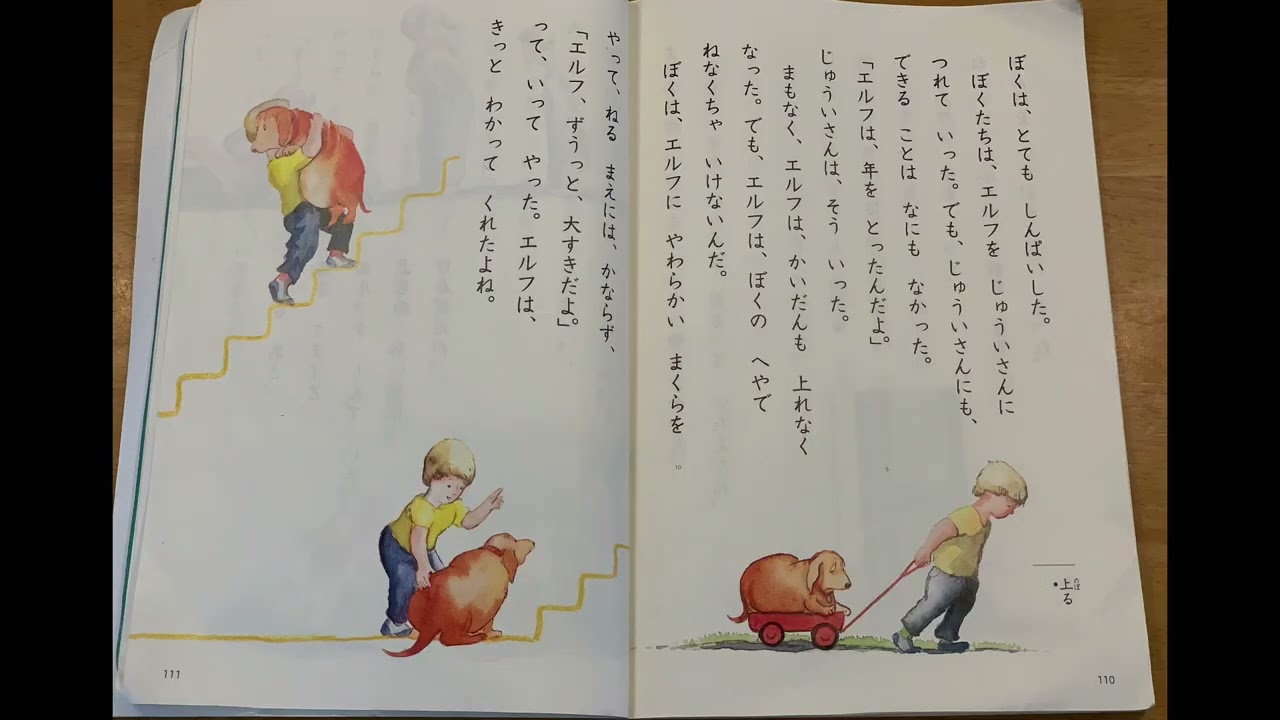 ぼくは、とても しんぱいした。
ぼくたちは、エルフを じゅういさんに
つれて いった。でも、じゅういさんにも、
できる ことは なにも なかった。
「エルフは、年を とったんだよ」
じゅういさんは、そう いった。
まもなく、エルフは、かいだんも 上れなく
なった。でも、エルフは、ぼくの へやで
ねなくちゃ いけないんだ。
ぼくは、エルフに やわらかい まくらを
5
10
・上る
のぼ
110
やって、ねる まえには、かならず、
「エルフ、ずうっと、大すきだよ」。
って、いって やった。エルフは、
きっと わかって くれたよね。
111